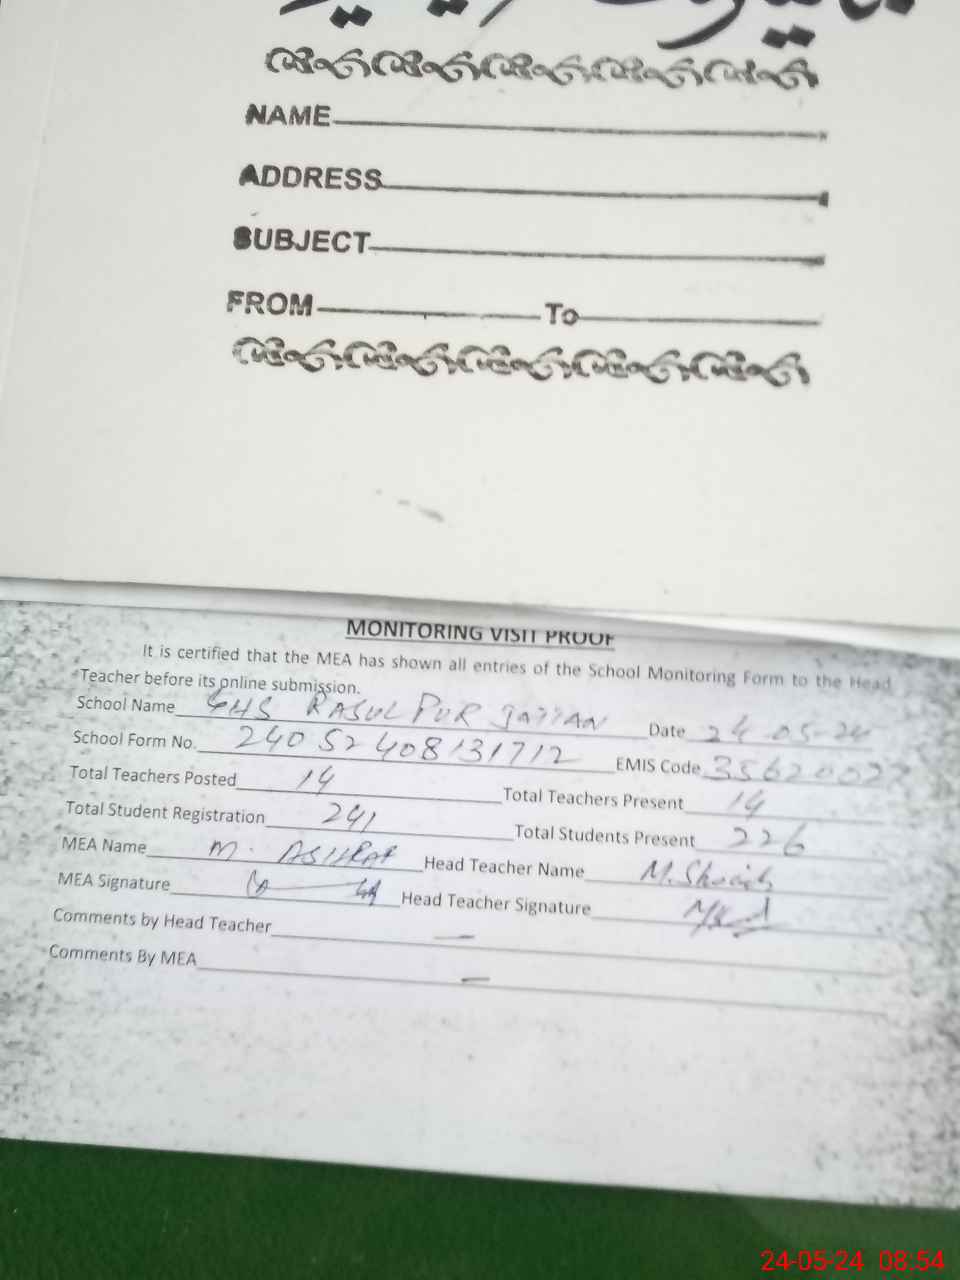 NAME
ADDRESS
SUBJECT
FROM To
MONITORING VISIT PROOF
It is certified that the MEA has shown all entries of the School Monitoring Form to the Head
Teacher before its online submission.
School Name GHS RASUL PUR JATTAN Date 24-05-24
School Form No. 24052408131712 EMIS Code
Total Teachers Posted 14 Total Teachers Present 14
Total Student Registration 241 Total Students Present 226
MEA Name M. ASHRAF Head Teacher Name M. Shoaib
MEA Signature Head Teacher Signature
Comments by Head Teacher —
Comments By MEA —
24-05-24 08:54